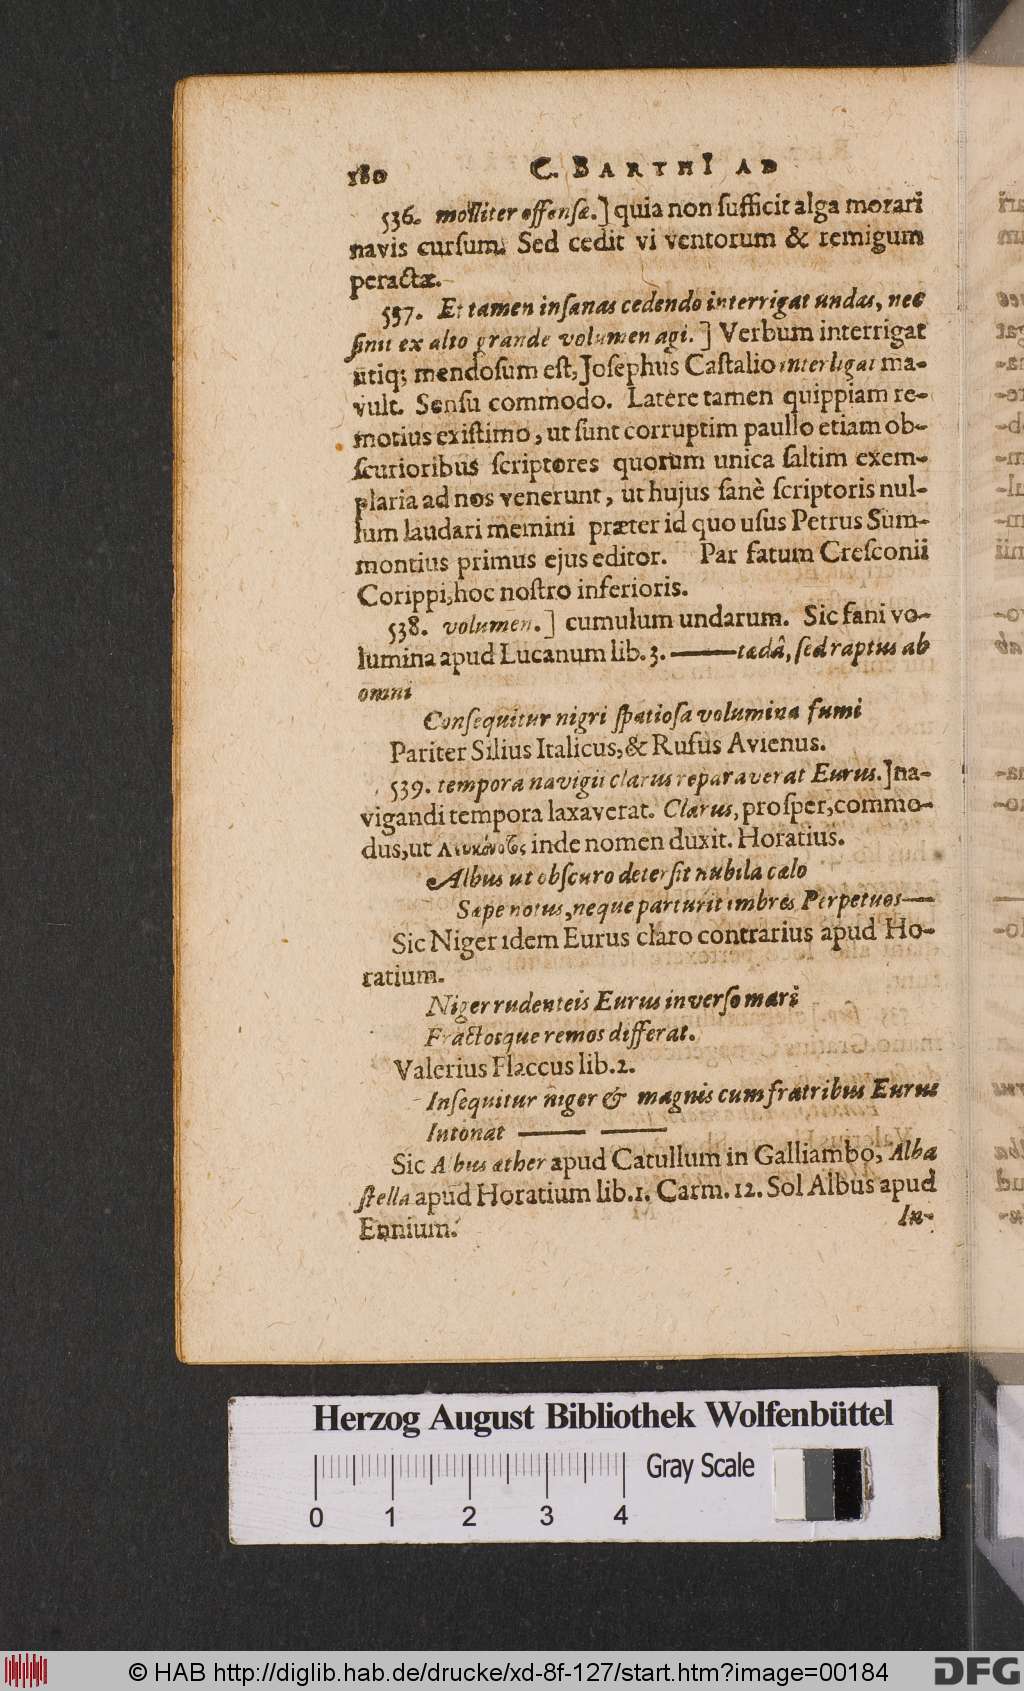 180 C. BARTHI AD
536. molliter offensæ.] quia non ſufficit alga morari
navis curſum. Sed cedit vi ventorum & remigum
peractæ.
537. Et tamen inſanas cedendo interrigat undas, nec
ſinit ex alto grande volumen agi.] Verbum interrigat
utiq; mendoſum eſt, Joſephus Caſtalio interligat ma-
vult. Senſu commodo. Latere tamen quippiam re-
motius exiſtimo, ut ſunt corruptim paullo etiam ob-
ſcurioribus ſcriptores quorum unica ſaltim exem-
plaria ad nos venerunt, ut hujus ſanè ſcriptoris nul-
lum laudari memini præter id quo uſus Petrus Sum-
montius primus ejus editor. Par fatum Creſconii
Corippi, hoc noſtro inferioris.
538. volumen.] cumulum undarum. Sic fani vo-
lumina apud Lucanum lib. 3. ——tædâ, ſed raptus ab
omni
Conſequitur nigri ſpatioſa volumina fumi
Pariter Silius Italicus, & Rufus Avienus.
539. tempora navigii clarus reparaverat Eurus.] na-
vigandi tempora laxaverat. Clarus, proſper, commo-
dus, ut inde nomen duxit. Horatius.
Albus ut obſcuro deterſit nubila cælo
Sæpe notus, neque parturit imbres Perpetuos——
Sic Niger idem Eurus claro contrarius apud Ho-
ratium.
Niger rudenteis Eurus inverſo mari
Fractosque remos differat.
Valerius Flaccus lib. 2.
Inſequitur niger & magnis cum fratribus Eurus
Intonat —— ——
Sic Albus æther apud Catullum in Galliambo, Alba
ſtella apud Horatium lib. 1. Carm. 12. Sol Albus apud
Ennium.
In-
Herzog August Bibliothek Wolfenbüttel
Gray Scale
0 1 2 3 4
© HAB http://diglib.hab.de/drucke/xd-8f-127/start.htm?image=00184
DFG